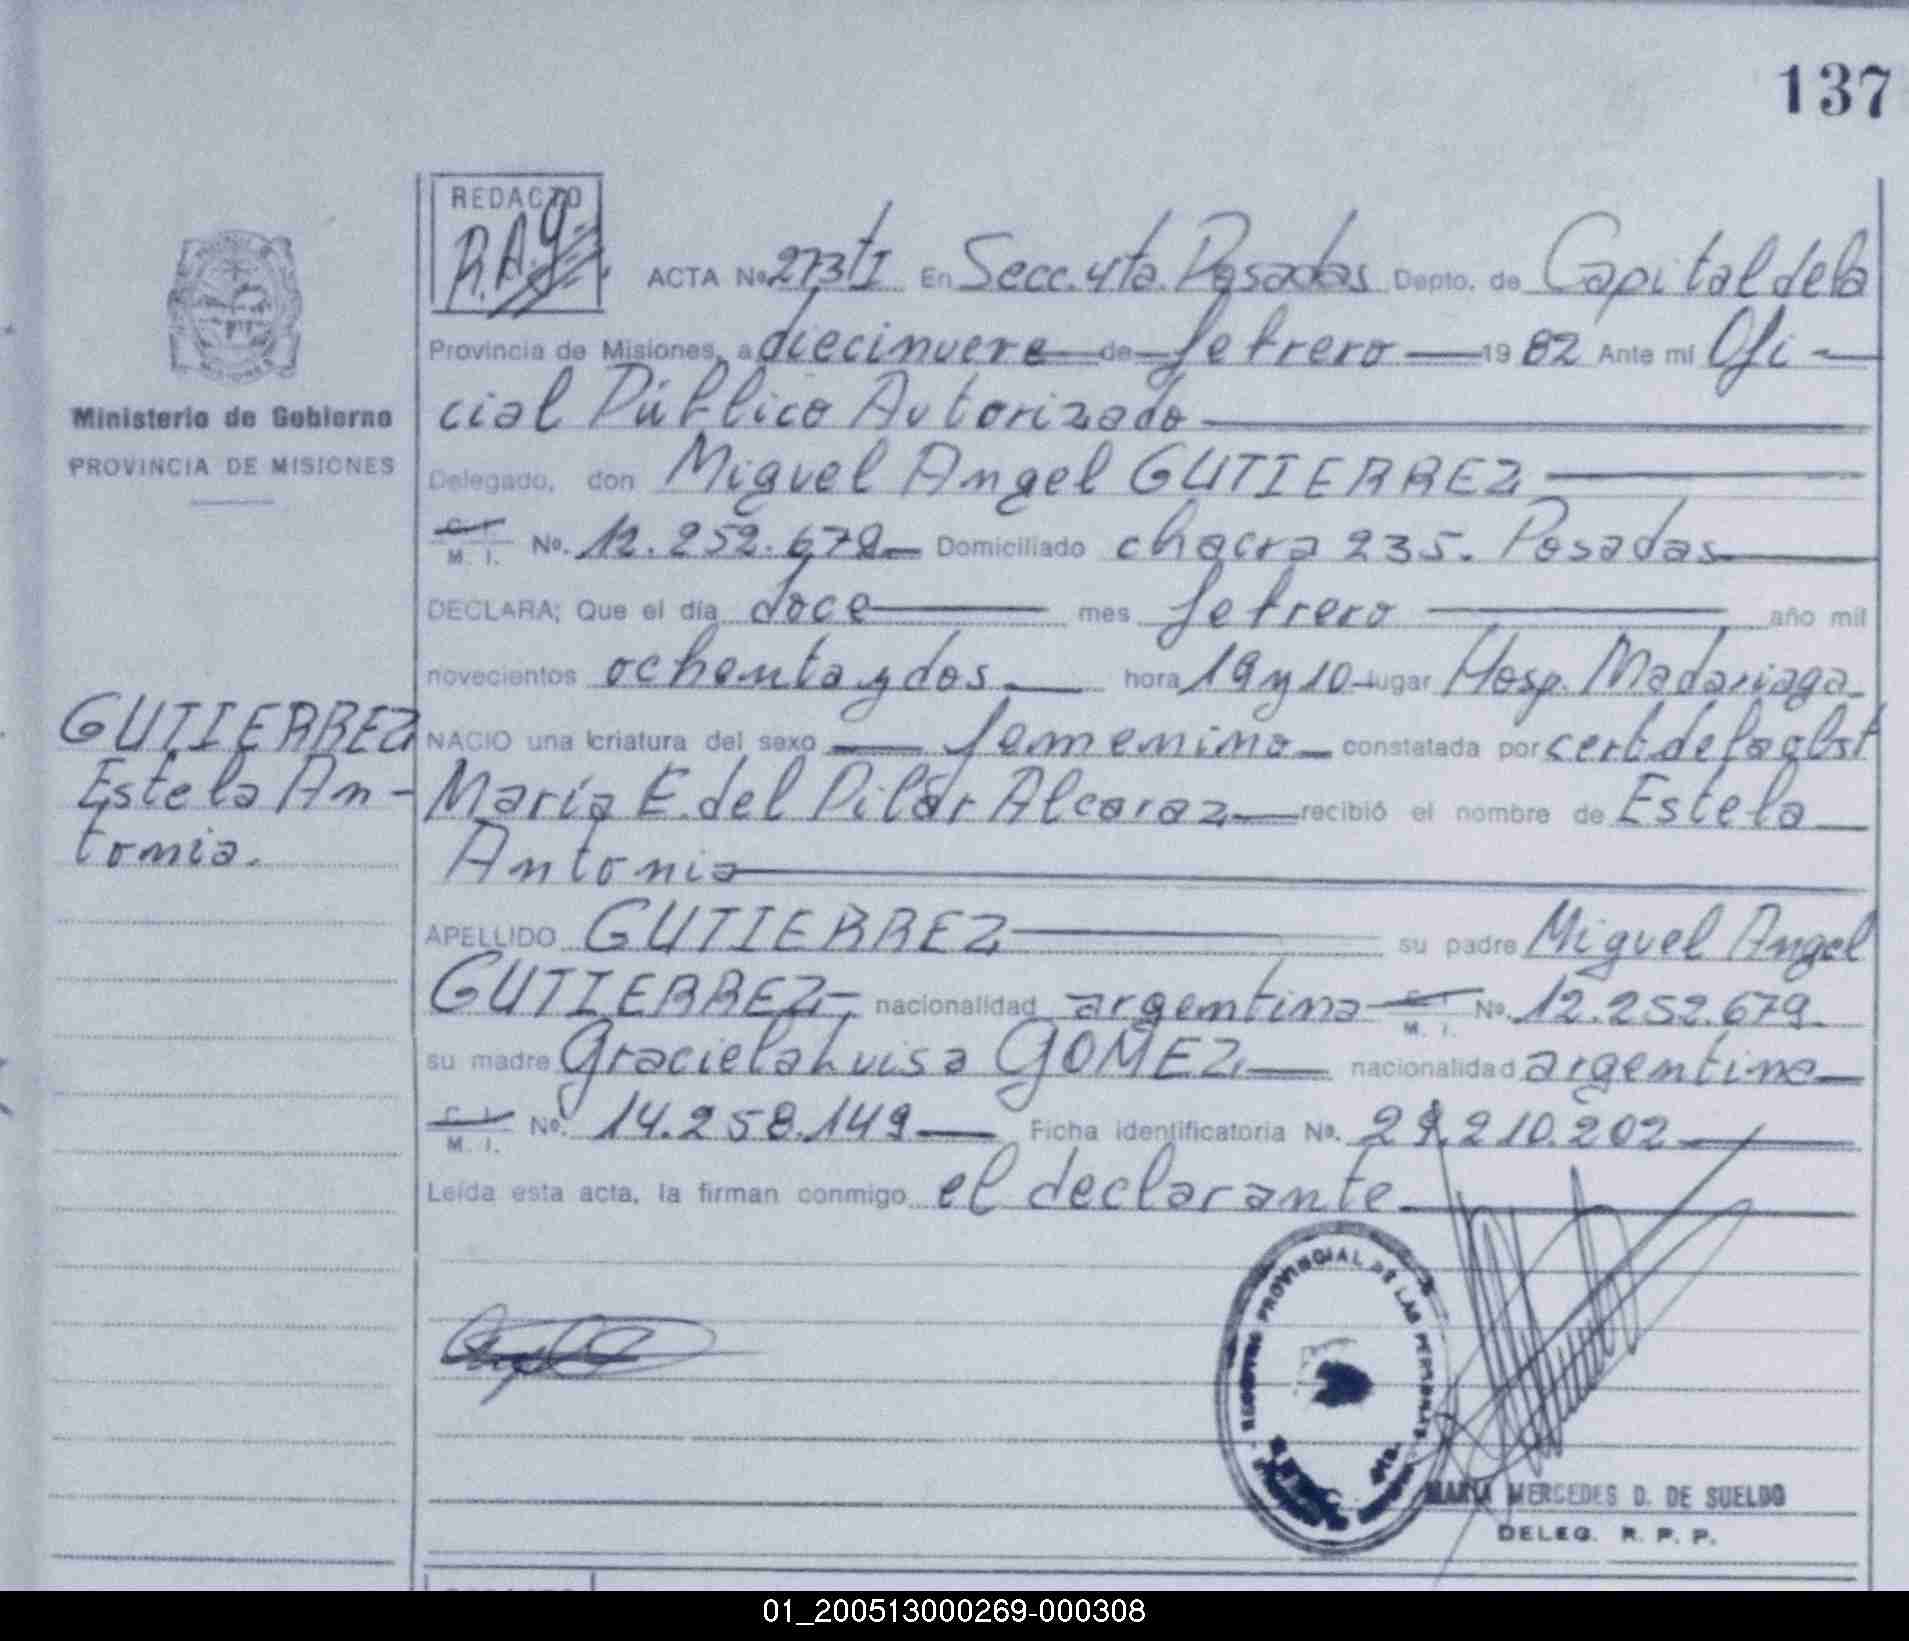 137
REDACTO
R.A.G.
ACTA No 273 tI En Secc. 4ta. Posadas Depto. de Capital de la
Provincia de Misiones, a diecinueve de febrero 19 82 Ante mí Ofi-
cial Público Autorizado
Delegado, don Miguel Angel GUTIERREZ
C. I.
M. I. No. 12.252.679 Domiciliado chacra 235. Posadas
DECLARA; Que el día doce mes febrero año mil
novecientos ochenta y dos hora 19 y 10 lugar Hosp. Madariaga
NACIO una criatura del sexo femenino constatada por cert. de la obst
María E. del Pilar Alcaraz recibió el nombre de Estela
Antonia
APELLIDO GUTIERREZ su padre Miguel Angel
GUTIERREZ nacionalidad argentina C. I. M. I. No. 12.252.679
su madre Graciela Luisa GOMEZ nacionalidad argentina
C. I.
M. I. No. 14.258.149 Ficha identificatoria No. 29.210.202
Leída esta acta, la firman conmigo el declarante
Ministerio de Gobierno
PROVINCIA DE MISIONES
GUTIERREZ
Estela An-
tonia.
PROVINCIAL DE LAS PERSONAS
MARIA MERCEDES D. DE SUELDO
DELEG. R. P. P.
01_200513000269-000308